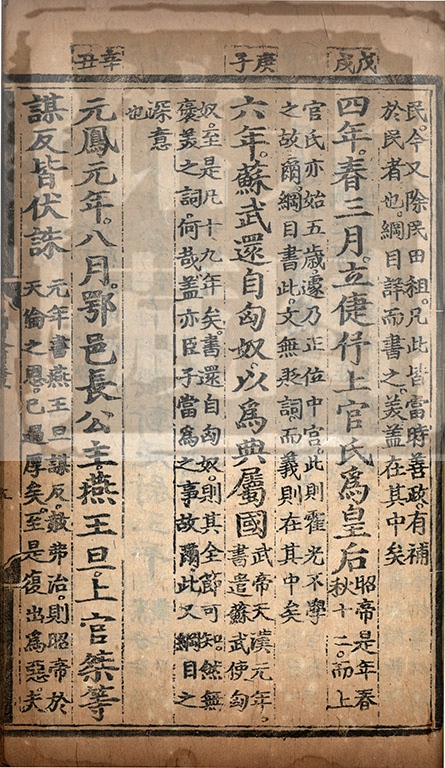 戊戌
民。今又除民田租。凡此皆當時善政。有補
於民者也。綱目詳而書之。美蓋在其中矣
四年。春三月。立倢伃上官氏為皇后
昭帝是年春
秋十二。而上
官氏亦始五歲。遽乃正位中宮。此則霍光不學
之故爾。綱目書此。文無貶詞。而義則在其中矣
庚子
六年。蘇武還自匈奴。以為典屬國
武帝天漢元年。
書遣蘇武使匈
奴。至是凡十九年矣。書還自匈奴。則其全節可知。然無
褒美之詞。何哉。蓋亦臣子當為之事。故爾。此又綱目之
深意
也
辛丑
元鳳元年。八月。鄂邑長公主。燕王旦。上官桀等
謀反皆伏誅
元年書燕王旦謀反。赦弗治。則昭帝於
天倫之恩。已過厚矣。至是復出為惡。夫